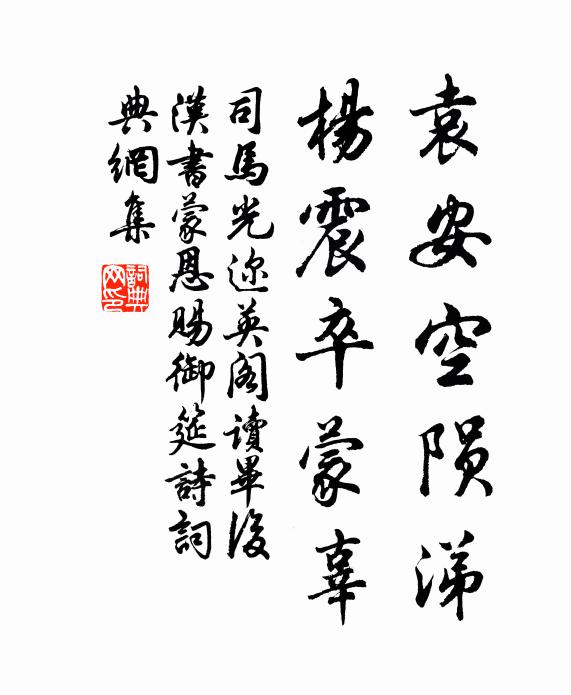 袁安空陨涕
楊震卒蒙辜
司馬光迩英阁讀畢後
漢書蒙恩賜御筵詩詞
典網集
詞典网印